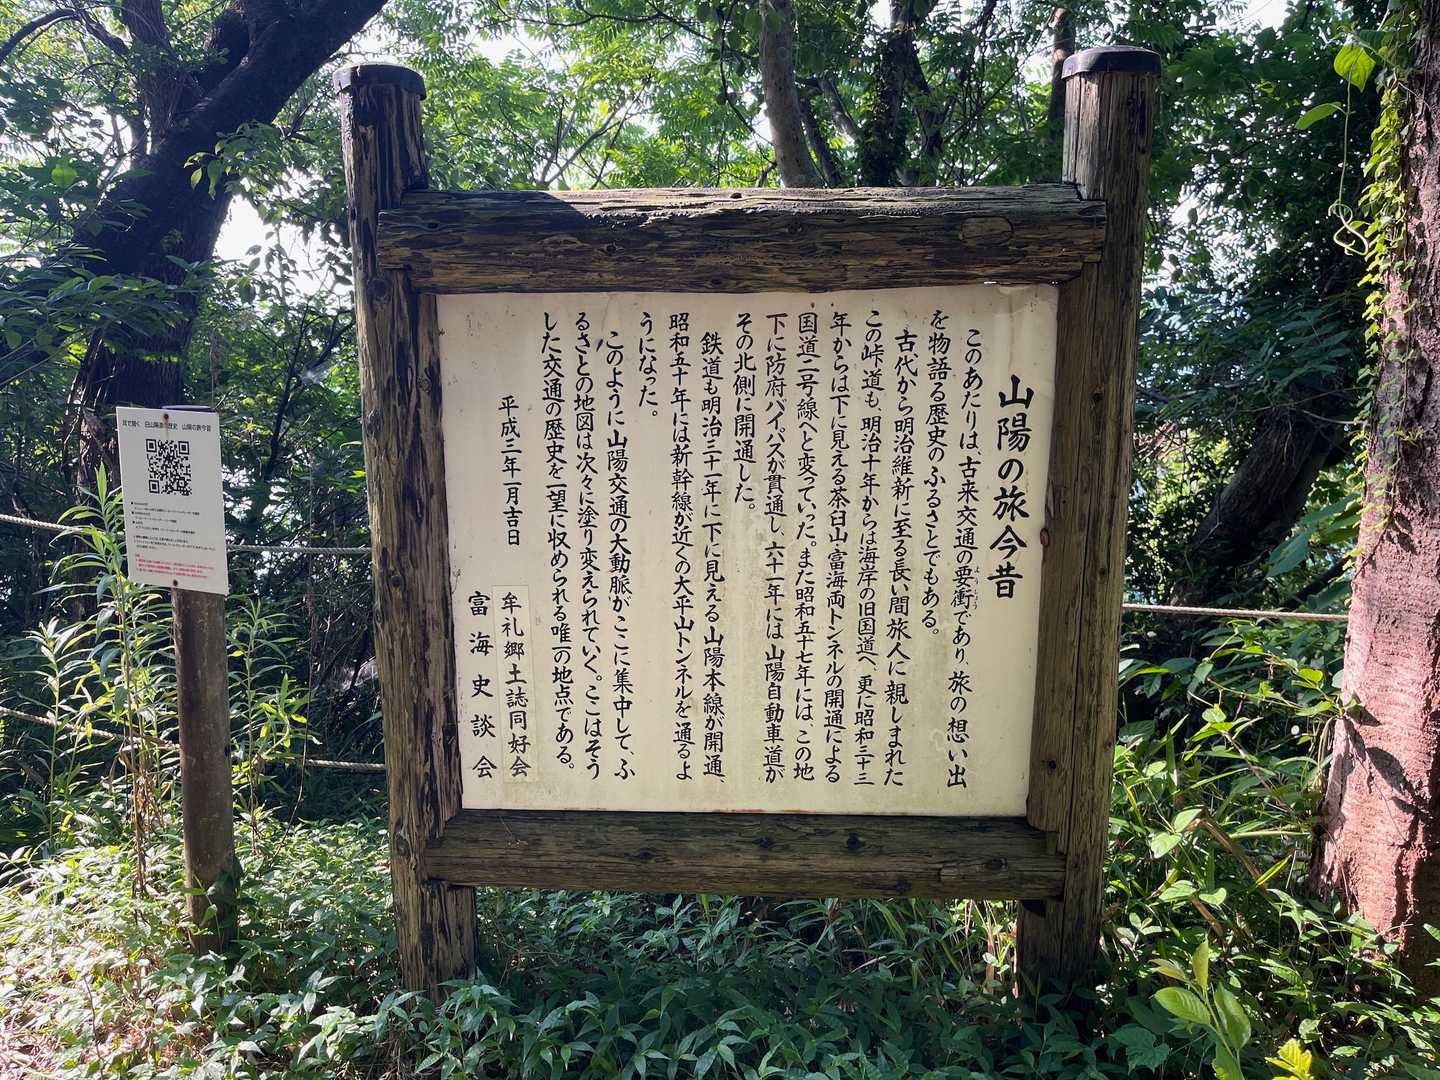 山陽の旅今昔
このあたりは、古来交通の要衝であり、旅の想い出
ようしょう
を物語る歴史のふるさとでもある。
古代から明治維新に至る長い間旅人に親しまれた
この峠道も、明治十年からは海岸の旧国道へ、更に昭和三十三
年からは下に見える茶臼山、富海両トンネルの開通による
国道二号線へと変っていった。また昭和五十七年には、この地
下に防府バイパスが貫通し、六十一年には山陽自動車道が
その北側に開通した。
鉄道も明治三十一年に下に見える山陽本線が開通、
昭和五十年には新幹線が近くの大平山トンネルを通るよ
うになった。
このように山陽交通の大動脈がここに集中して、ふ
るさとの地図は次々に塗り変えられていく。ここはそう
した交通の歴史を一望に収められる唯一の地点である。
平成三年一月吉日
牟礼郷土誌同好会
富海史談会
耳で聴く 旧山陽道の歴史 山陽の旅今昔